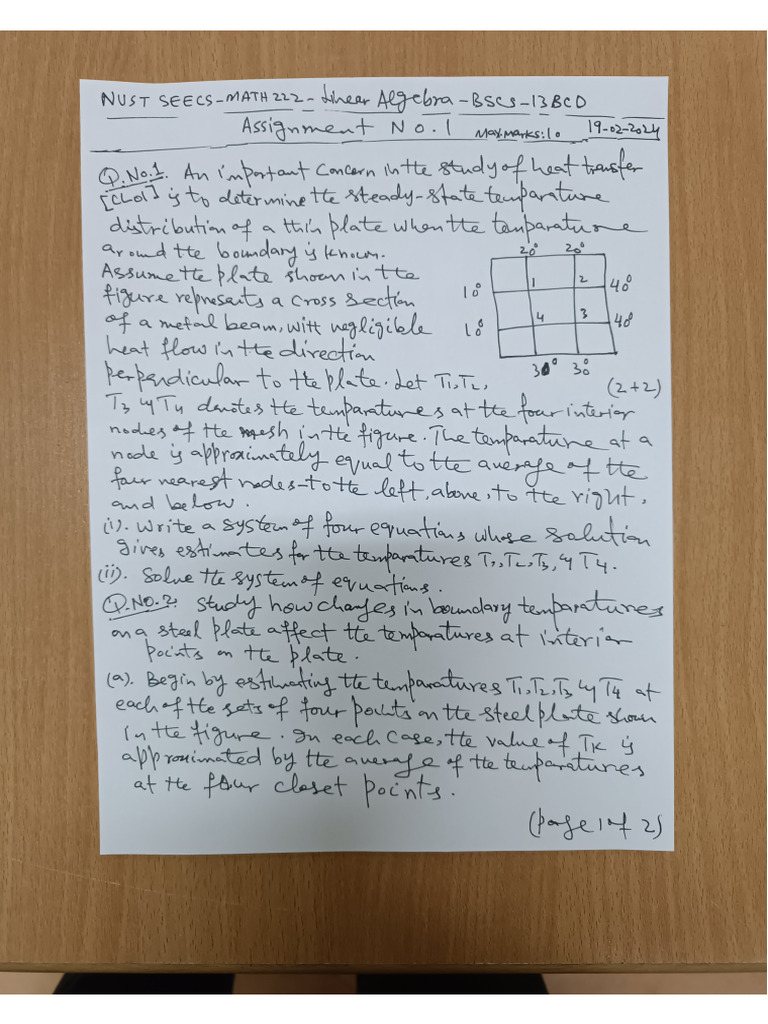 NUST SEECS-MATH222-Linear Algebra-BSCS-13BCD
Assignment No.1 Max marks:10 19-02-2024
Q.No.1. An important concern in the study of heat transfer
[CLO1] is to determine the steady-state temparature
distribution of a thin plate when the temparature
around the boundary is known.
20° 20°
Assume the plate shown in the
1 2 40°
10°
figure represents a cross section
of a metal beam, with negligible
4 3 40°
10°
heat flow in the direction
30° 30°
perpendicular to the plate. Let T1,T2,
(2+2)
T3 & T4 denotes the temparatures at the four interior
nodes of the mesh in the figure. The temparature at a
node is approximately equal to the average of the
four nearest nodes-to the left, above, to the right,
and below.
(i). Write a system of four equations whose solution
gives estimates for the temparatures T1,T2,T3, & T4.
(ii). Solve the system of equations.
Q.NO.2. Study how changes in boundary temparatures
on a steel plate affect the temparatures at interior
points on the plate.
(a). Begin by estimating the temparatures T1,T2,T3 & T4 at
each of the sets of four points on the steel plate shown
in the figure. In each case, the value of TK is
approximated by the average of the temparatures
at the four closet points.
(page 1 of 2)